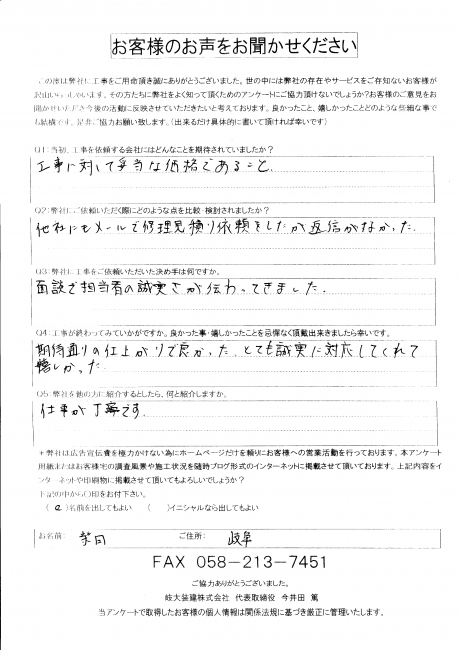 お客様のお声をお聞かせください
この度は弊社に工事をご用命頂き誠にありがとうございました。世の中には弊社の存在やサービスをご存知ないお客様が
沢山いらっしゃいます。その方たちに弊社をよく知って頂くためのアンケートにご協力頂けないでしょうか?お客様のご意見をお
聞かせいただき今後の活動に反映させていただきたいと考えております。良かったこと、嬉しかったことどのような些細な事で
も結構です。是非ご協力お願い致します。(出来るだけ具体的に書いて頂ければ幸いです)
Q1:当初、工事を依頼する会社にはどんなことを期待されていましたか?
工事に対して妥当な価格であること.
Q2:弊社にご依頼いただく際にどのような点を比較・検討されましたか?
他社にもメールで修理見積り依頼をしたが返信がなかった.
Q3:弊社に工事をご依頼いただいた決め手は何ですか。
面談で担当者の誠実さが伝わってきました.
Q4:工事が終わってみていかがですか。良かった事・嬉しかったことを忌憚なく頂戴出来きましたら幸いです。
期待通りの仕上がりで良かった.とても誠実に対応してくれて
嬉しかった.
Q5:弊社を他の方に紹介するとしたら、何と紹介しますか。
仕事が丁寧です.
*弊社は広告宣伝費を極力かけない為にホームページだけを頼りにお客様への営業活動を行っております。本アンケート
用紙またはお客様宅の調査風景や施工状況を随時ブログ形式のインターネットに掲載させて頂いております。上記内容をイ
ンターネットや印刷物に掲載させて頂いてもよろしいでしょうか?
下記の中から○印をお付下さい。
(○)名前を出してもよい ( )イニシャルなら出してもよい
お名前: 柴田 ご住所: 岐阜
FAX 058-213-7451
ご協力ありがとうございました。
岐大装建株式会社 代表取締役 今井田 篤
当アンケートで取得したお客様の個人情報は関係法規に基づき厳正に管理いたします。